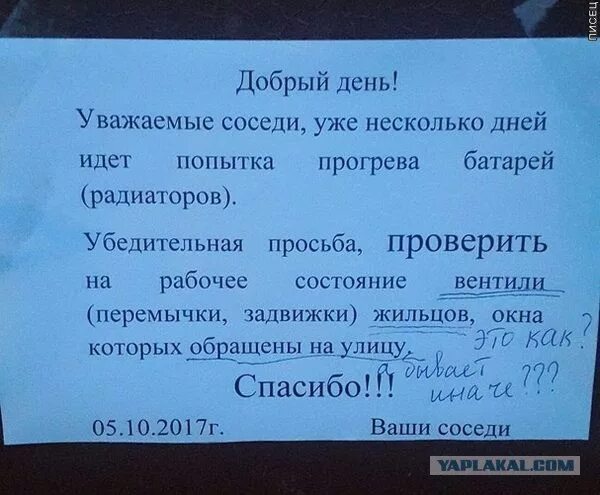 ПИСЕЦ
Добрый день!
Уважаемые соседи, уже несколько дней
идет попытка прогрева батарей
(радиаторов).
Убедительная просьба, проверить
на рабочее состояние вентили
(перемычки, задвижки) жильцов, окна
которых обращены на улицу.
это как?
а бывает
иначе???
Спасибо!!!
05.10.2017г.
Ваши соседи
YAPLAKAL.COM